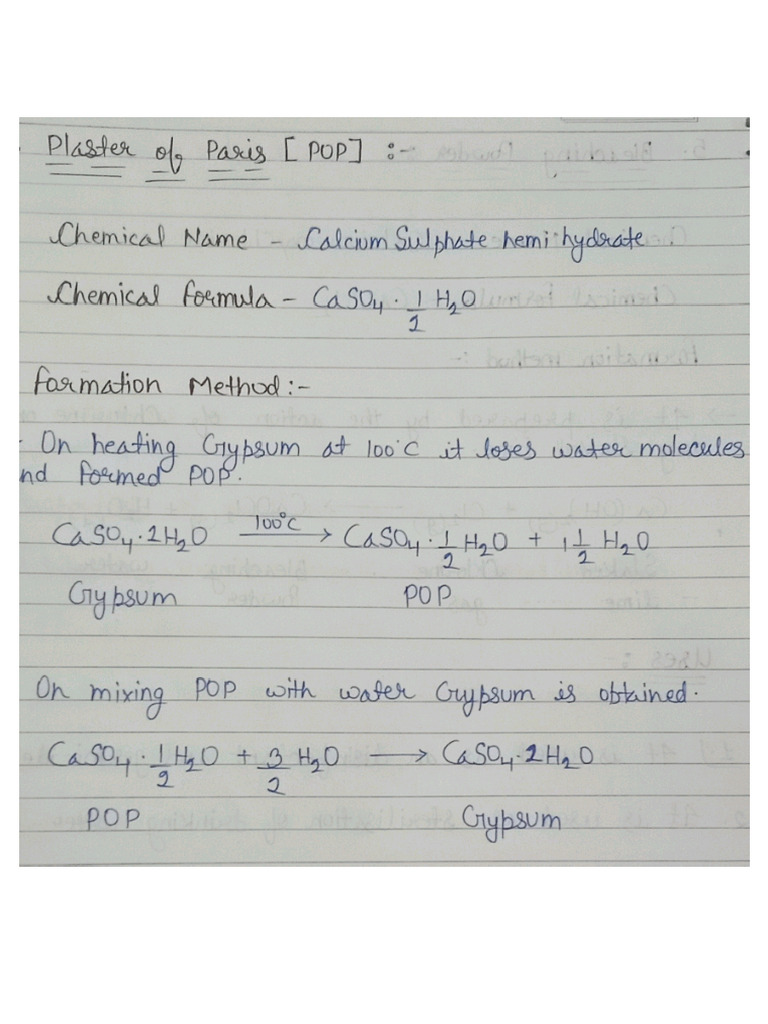 Plaster of Paris [POP] :-
Chemical Name - Calcium Sulphate hemi hydrate
Chemical formula - CaSO₄ · 1/2 H₂O
formation Method :-
· On heating Gypsum at 100°C it loses water molecules
nd formed POP.
CaSO₄·2H₂O —100°C→ CaSO₄·1/2 H₂O + 1 1/2 H₂O
Gypsum POP
On mixing POP with water Gypsum is obtained.
CaSO₄·1/2 H₂O + 3/2 H₂O → CaSO₄·2H₂O
POP Gypsum